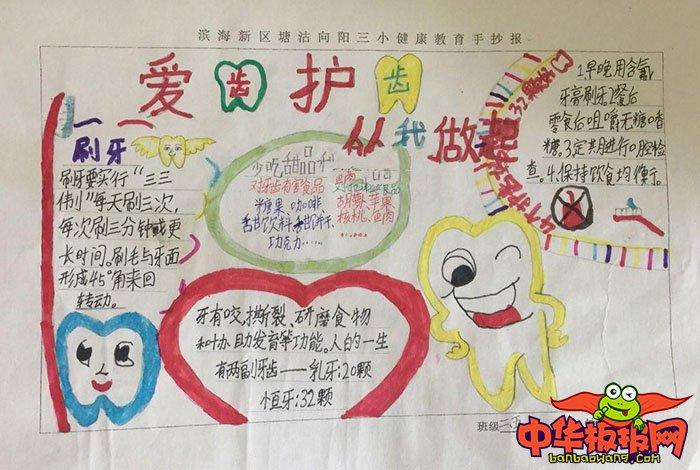 滨海新区塘沽向阳三小健康教育手抄报
爱齿护齿
从我做起
刷牙
刷牙要实行“三三
每天刷三次,
每次刷三分钟或更
长时间。刷毛与牙面
形成45°角来回
转动。
少吃甜品和
对牙齿有害食品
糖果、咖啡、
功克力……
胡萝、苹果
核桃、鱼肉
32颗
1.早晚用含氟
牙膏刷牙。2餐后
零食后咀嚼无糖口香
糖。3定期进行口腔检
查。4、保持饮食均衡。
牙有咬、撕裂、研磨食物
和协助发育等功能。人的一生
有两副牙齿——乳牙:20颗
恒牙:32颗
班级
中华板报网
banbaowang.com